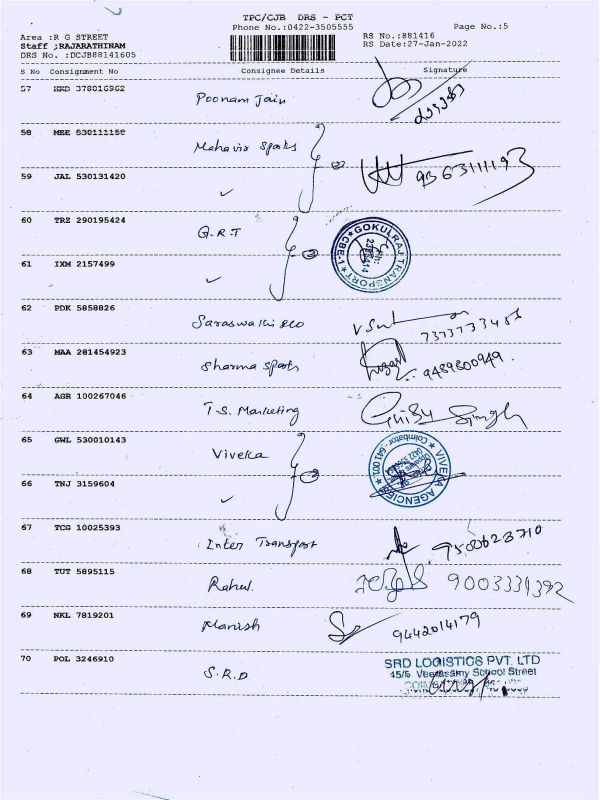 TPC/CJB DRS - PCT
Phone No.:0422-3505555
Page No.:5
Area :R G STREET
Staff ;RAJARATHINAM
DRS No. :DCJB88141605
RS No.:881416
RS Date:27-Jan-2022
S No Consignment No Consignee Details Signature
57 HRD 378016962 Poonam Jain
58 MSE 530111158 Mahavir Sports
59 JAL 530131420 ✓ 9363111193
60 TRZ 290195424 G.R.T
GOKULRAJ TRANSPORT ★ CBE-1 ★
61 IXM 2157499 ✓
62 PDK 5858826 Saraswathi
63 MAA 281454923 Sharma Sports 9489800949.
64 AGR 100267046 T.S. Marketing Singh
65 GWL 530010143 Viveka
VIVEKA AGENCIES ★ Coimbatore - 641 001 ★
66 TNJ 3159604 ✓
67 TCG 10025393 Inter Transport 9500623710
68 TUT 5895115 Rahul. 9003331392
69 NKL 7819201 Manish 9442014179
70 POL 3246910 S.R.D
SRD LOGISTICS PVT. LTD
45/5, Veerasamy School Street